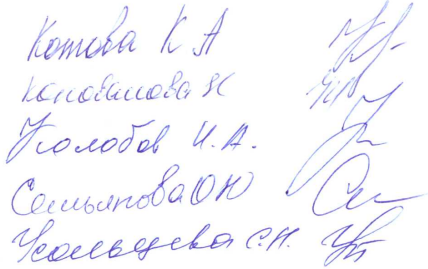 Котова К А
Коновалова Н
Колобов И. А.
Семьянова О Ю
Кольцева С. Н.